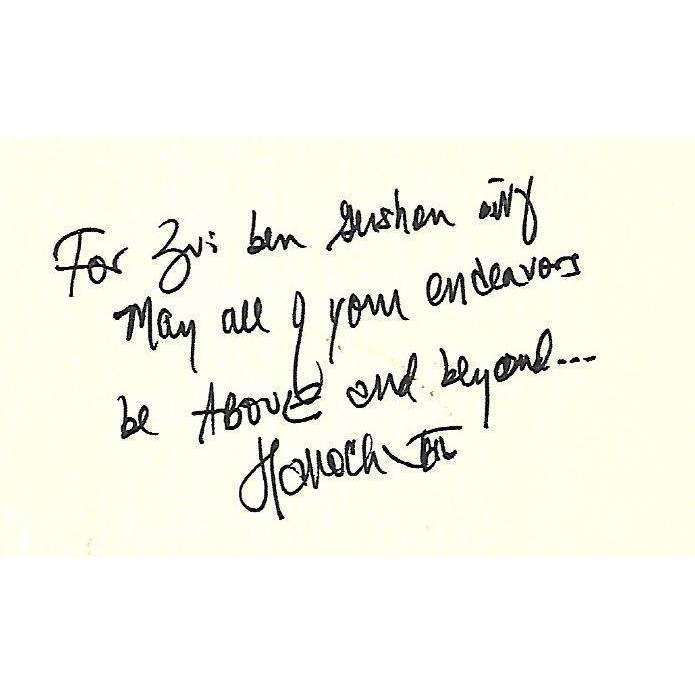 For Zvi ben Gershon
May all of your endeavors
be Above and beyond...
Hanoch